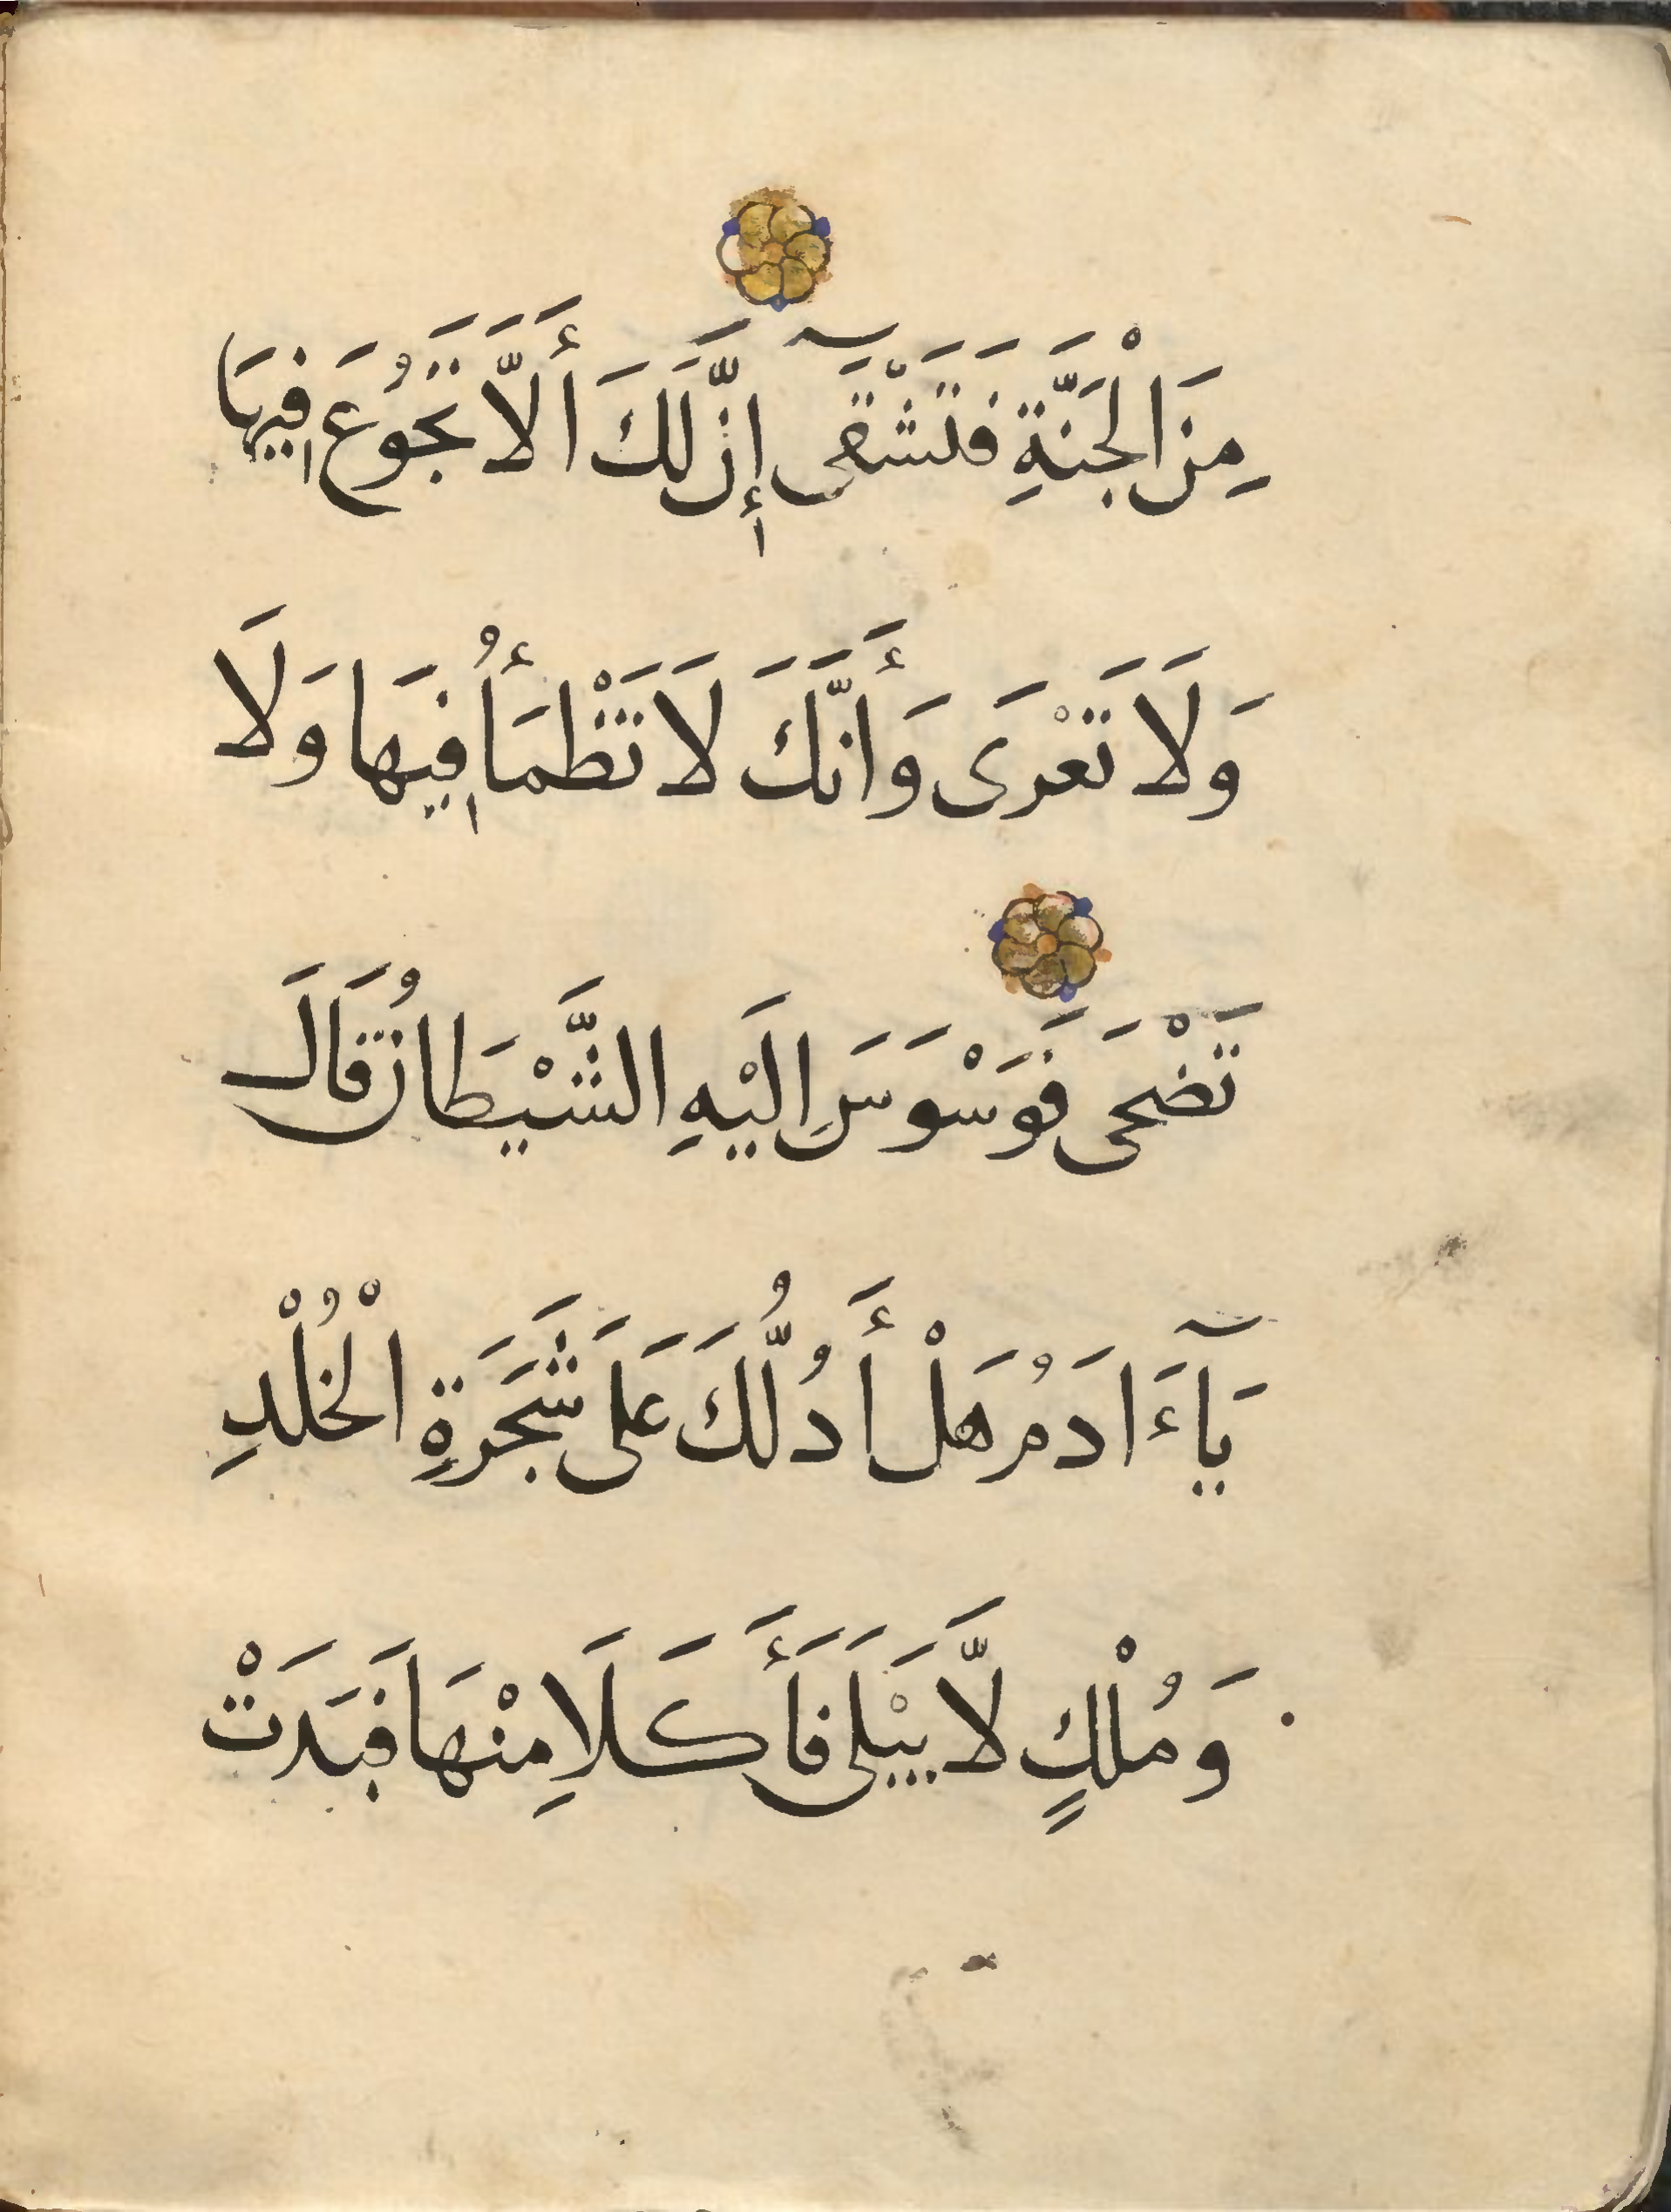 مِنَ الْجَنَّةِ فَتَشْقَىٓ إِنَّ لَكَ أَلَّا تَجُوُعَ فِيهَا
وَلَا تَعْرَى وَأَنَّكَ لَا تَظْمَأُ فِيهَا وَلَا
تَضْحَى فَوَسْوَسَ اِلَيْهِ الشَّيْطَانُ قَالَ
يَآءَادَمُ هَلْ أَدُلُّكَ عَلَى شَجَرَةِ الْخُلْدِ
وَمُلْكٍ لَّا يَبْلَى فَأَكَلَا مِنْهَا فَبَدَتْ